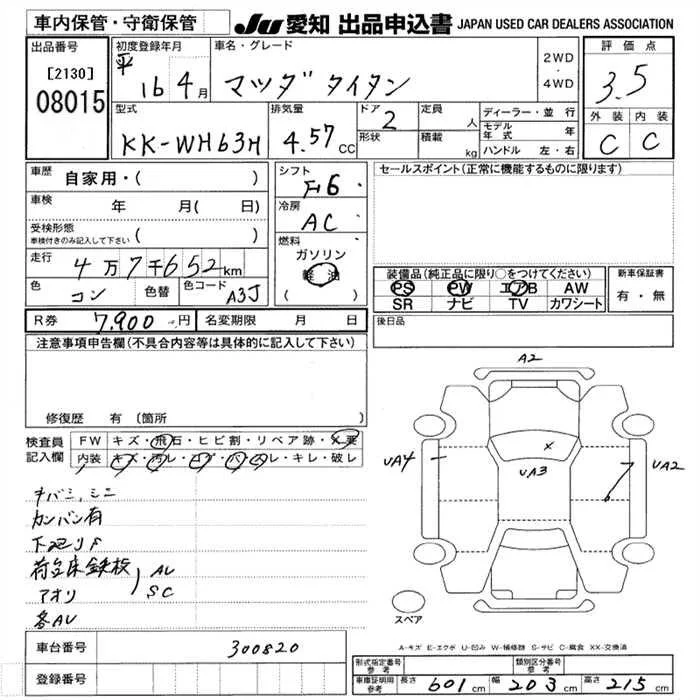 車内保管・守衛保管
JU 愛知 出品申込書 JAPAN USED CAR DEALERS ASSOCIATION
出品番号
[2130]
08015
初度登録年月
平 16 4月
車名・グレード
マツダ タイタン
2WD
・
4WD
評価点
3.5
外装 内装
C C
型式
KK-WH63H
排気量
4.57 CC
ドア
2
形状
定員
人
積載
kg
ディーラー・並行
モデル年式 年
ハンドル 左・右
車歴 自家用・( )
車検 年 月(日)
受検形態
車検付きのみ記入して下さい ( )
走行 4万7千652km
色 コン 色替 色コード A3J
シフト
F6
冷房
AC
燃料
ガソリン
軽油
( )
セールスポイント(正常に機能するものに限ります)
装備品(純正品に限り○をつけてください)
PS PW エアB AW
SR ナビ TV カワシート
新車保証書
有・無
R券 7,900円 名変期限 月 日
後日品
注意事項申告欄(不具合内容等は具体的に記入して下さい)
修復歴 有 〔箇所 〕
検査員
記入欄
FW キズ・飛石・ヒビ割・リペア跡・X要
内装 キズ・汚レ・コゲ・ハガレ・キレ・破レ
A2
UA4
UA3
X
UA2
カンバン有
アオリ
AU
SC
各AU
スペア
A-キズ E-エクボ U-凹み W-補修跡 S-サビ C-腐食 XX-交換済
車台番号 300820
登録番号
形式指定番号
参考
類別区分番号
参考
車庫証明用
参考
長さ 601cm 幅 203cm 高さ 215cm